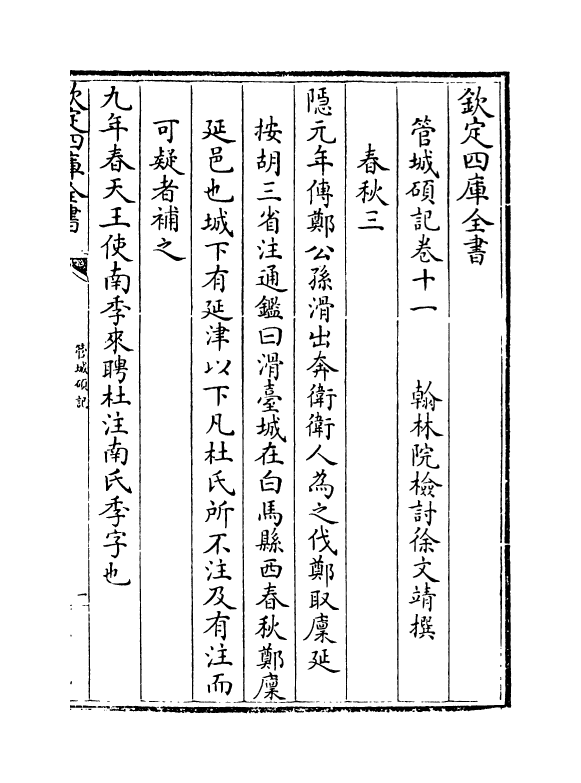 欽定四庫全書
管城碩記卷十一　　翰林院檢討徐文靖撰
春秋三
隱元年傳鄭公孫滑出奔衛衛人為之伐鄭取廩延
按胡三省注通鑑曰滑臺城在白馬縣西春秋鄭廩
延邑也城下有延津以下凡杜氏所不注及有注而
可疑者補之
九年春天王使南季來聘杜注南氏季字也
欽定四庫全書
管城碩記
一